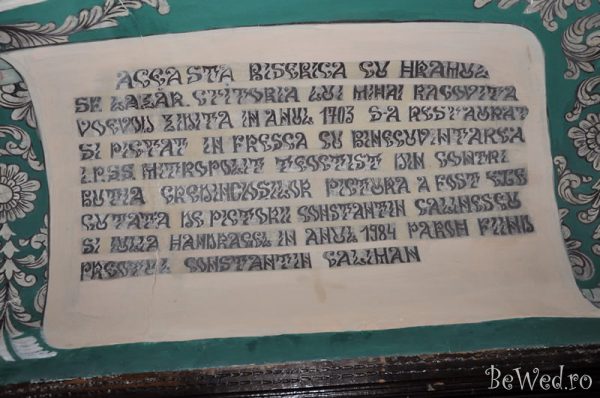 ACEASTA BISERICA CU HRAMUL
SF. LAZĂR. CTITORIA LUI MIHAI RACOVITA
VOEVOD ZIDITA IN ANUL 1703 S-A RESTAURAT
SI PICTAT IN FRESCA CU BINECUVINTAREA
I.P.SS. MITROPOLIT TEOCTIST DIN CONTRI
BUTIA CREDINCIOSILOR PICTURA A FOST EXE
CUTATA DE PICTORII CONSTANTIN CALINESCU
SI IULIA HANDRAGEL IN ANUL 1984 PAROH FIIND
PREOTUL CONSTANTIN CALIMAN
BeWed.ro